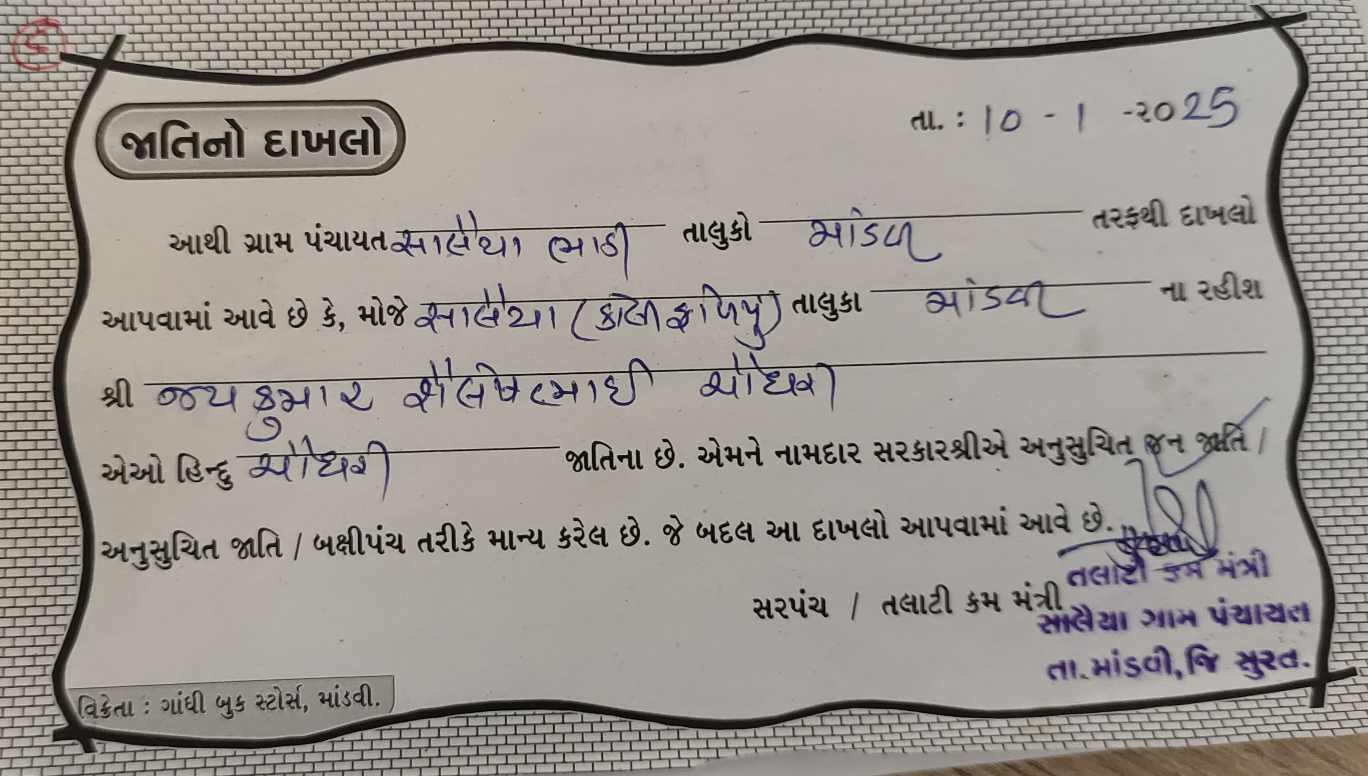 જાતિનો દાખલો
તા. : 10 - 1 -૨૦25
આથી ગ્રામ પંચાયત સાલૈયા તાલુકો માંડવી તરફથી દાખલો
આપવામાં આવે છે કે, મોજે સાલૈયા (કોલી ફળિયું) તાલુકા માંડવી ના રહીશ
શ્રી જયકુમાર શૈલેષભાઈ ચૌધરી
એઓ હિન્દુ ચૌધરી જાતિના છે. એમને નામદાર સરકારશ્રીએ અનુસુચિત જન જાતિ /
અનુસુચિત જાતિ / બક્ષીપંચ તરીકે માન્ય કરેલ છે. જે બદલ આ દાખલો આપવામાં આવે છે.
સરપંચ / તલાટી કમ મંત્રી
તલાટી કમ મંત્રી
સાલૈયા ગ્રામ પંચાયત
તા.માંડવી, જિ સુરત.
વિક્રેતા : ગાંધી બુક સ્ટોર્સ, માંડવી.